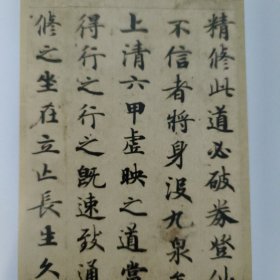 精修此道必破券登仙
不信者將身沒九泉
上清六甲虛映之道當
得行之行之既速致通
修之坐在立亡長生久